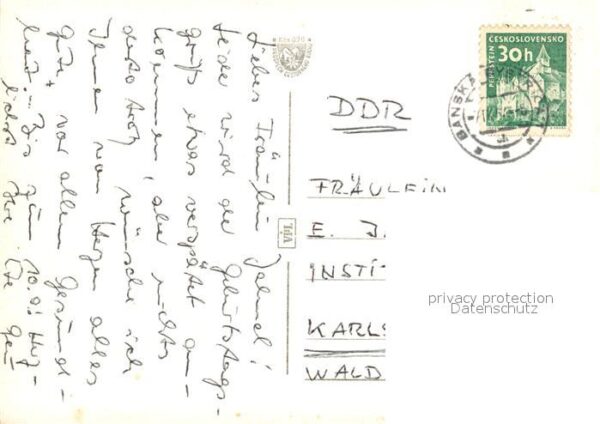 Liebes Fräulein Jahnel!
Leider wird der Geburtstags-
gruß etwas verspätet an-
kommen, aber nichts
desto trotz wünsche ich
Ihnen von Herzen alles
Gute, vor allem Gesund-
heit. Bis zum 10.8! Herz-
lichst Ihre
ČESKOSLOVENSKO
30h
REJŠTEJN
BANSKÁ BYSTRICA
DDR
FRÄULEIN
E. J.
INSTI
KARLS
WALD
privacy protection
Datenschutz